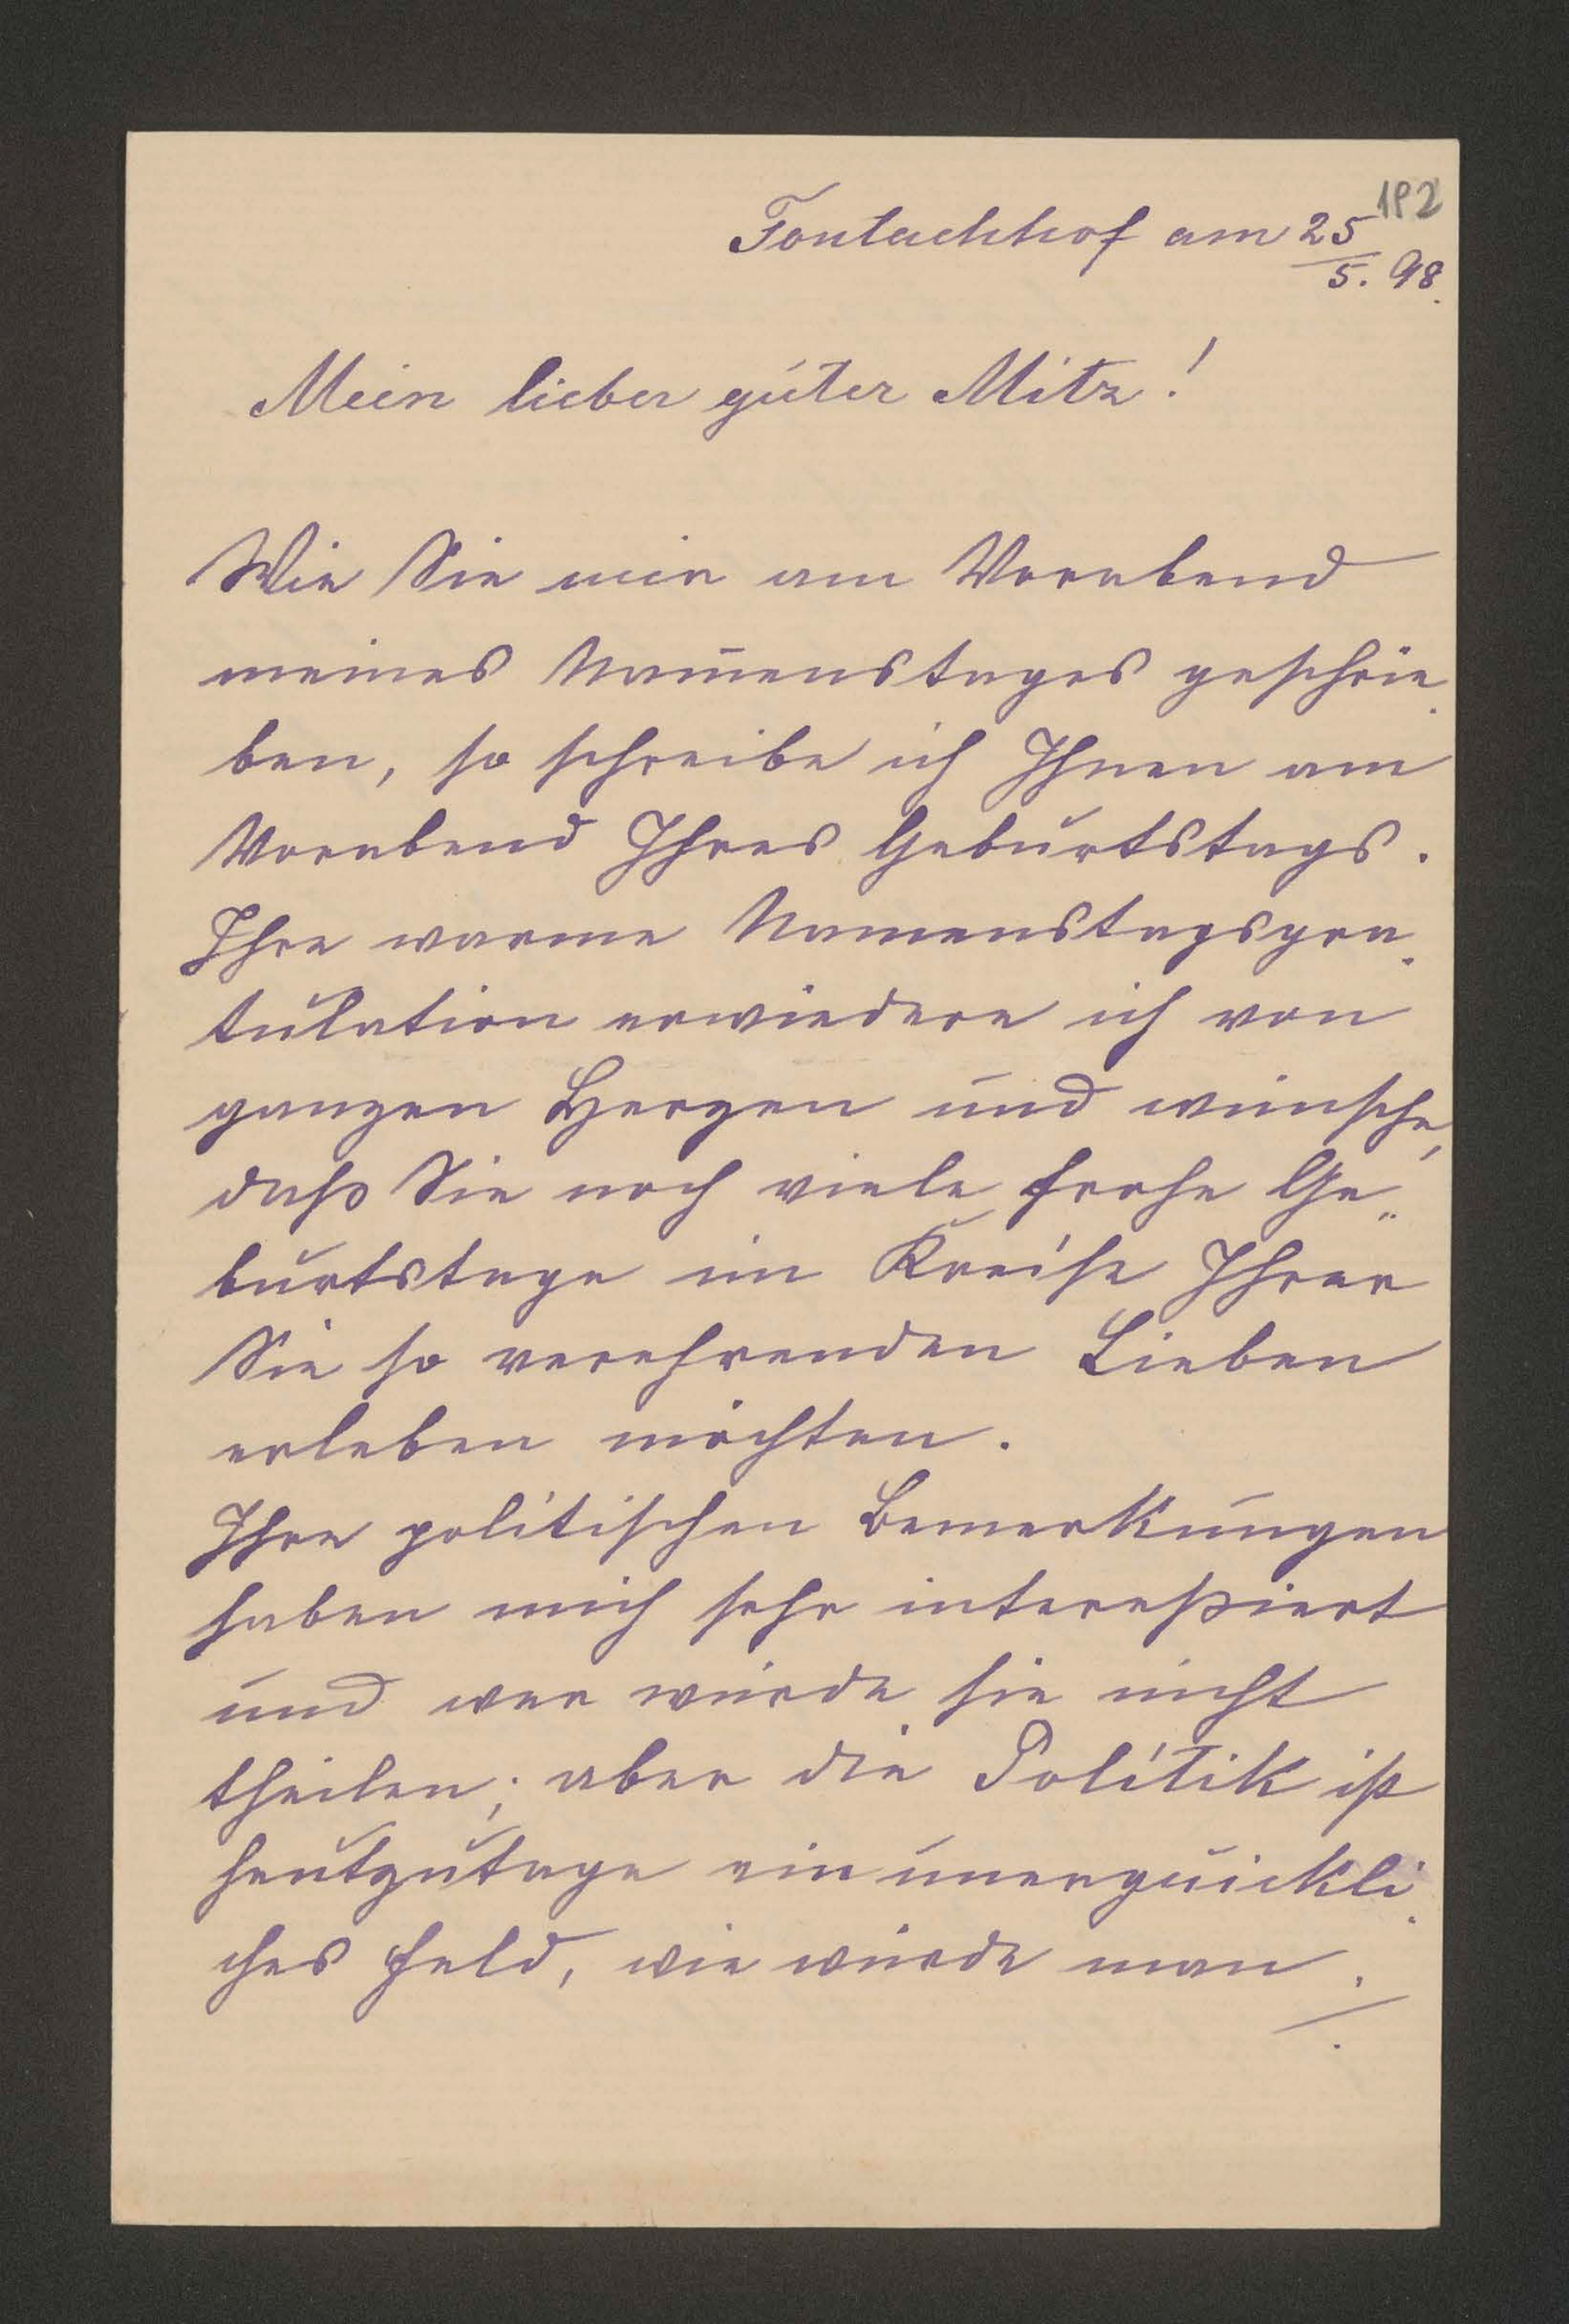 182
Fontachhof am 25/5. 98.
Mein lieber guter Mitz!
Wie Sie mir am Vorabend
meines Namenstages geschrie-
ben, so schreibe ich Ihnen am
Vorabend Ihres Geburtstags.
Ihre warme Namenstagsgra-
tulation erwiedere ich von
ganzen Herzen und wünsche,
daß Sie noch viele frohe Ge-
burtstage im Kreise Ihrer
Sie so verehrenden Lieben
erleben möchten.
Ihre politischen Bemerkungen
haben mich sehr intereßiert
und wer würde sie nicht
theilen; aber die Politik ist
heutzutage ein unerquickli-
ches Feld, wie würde man ./.